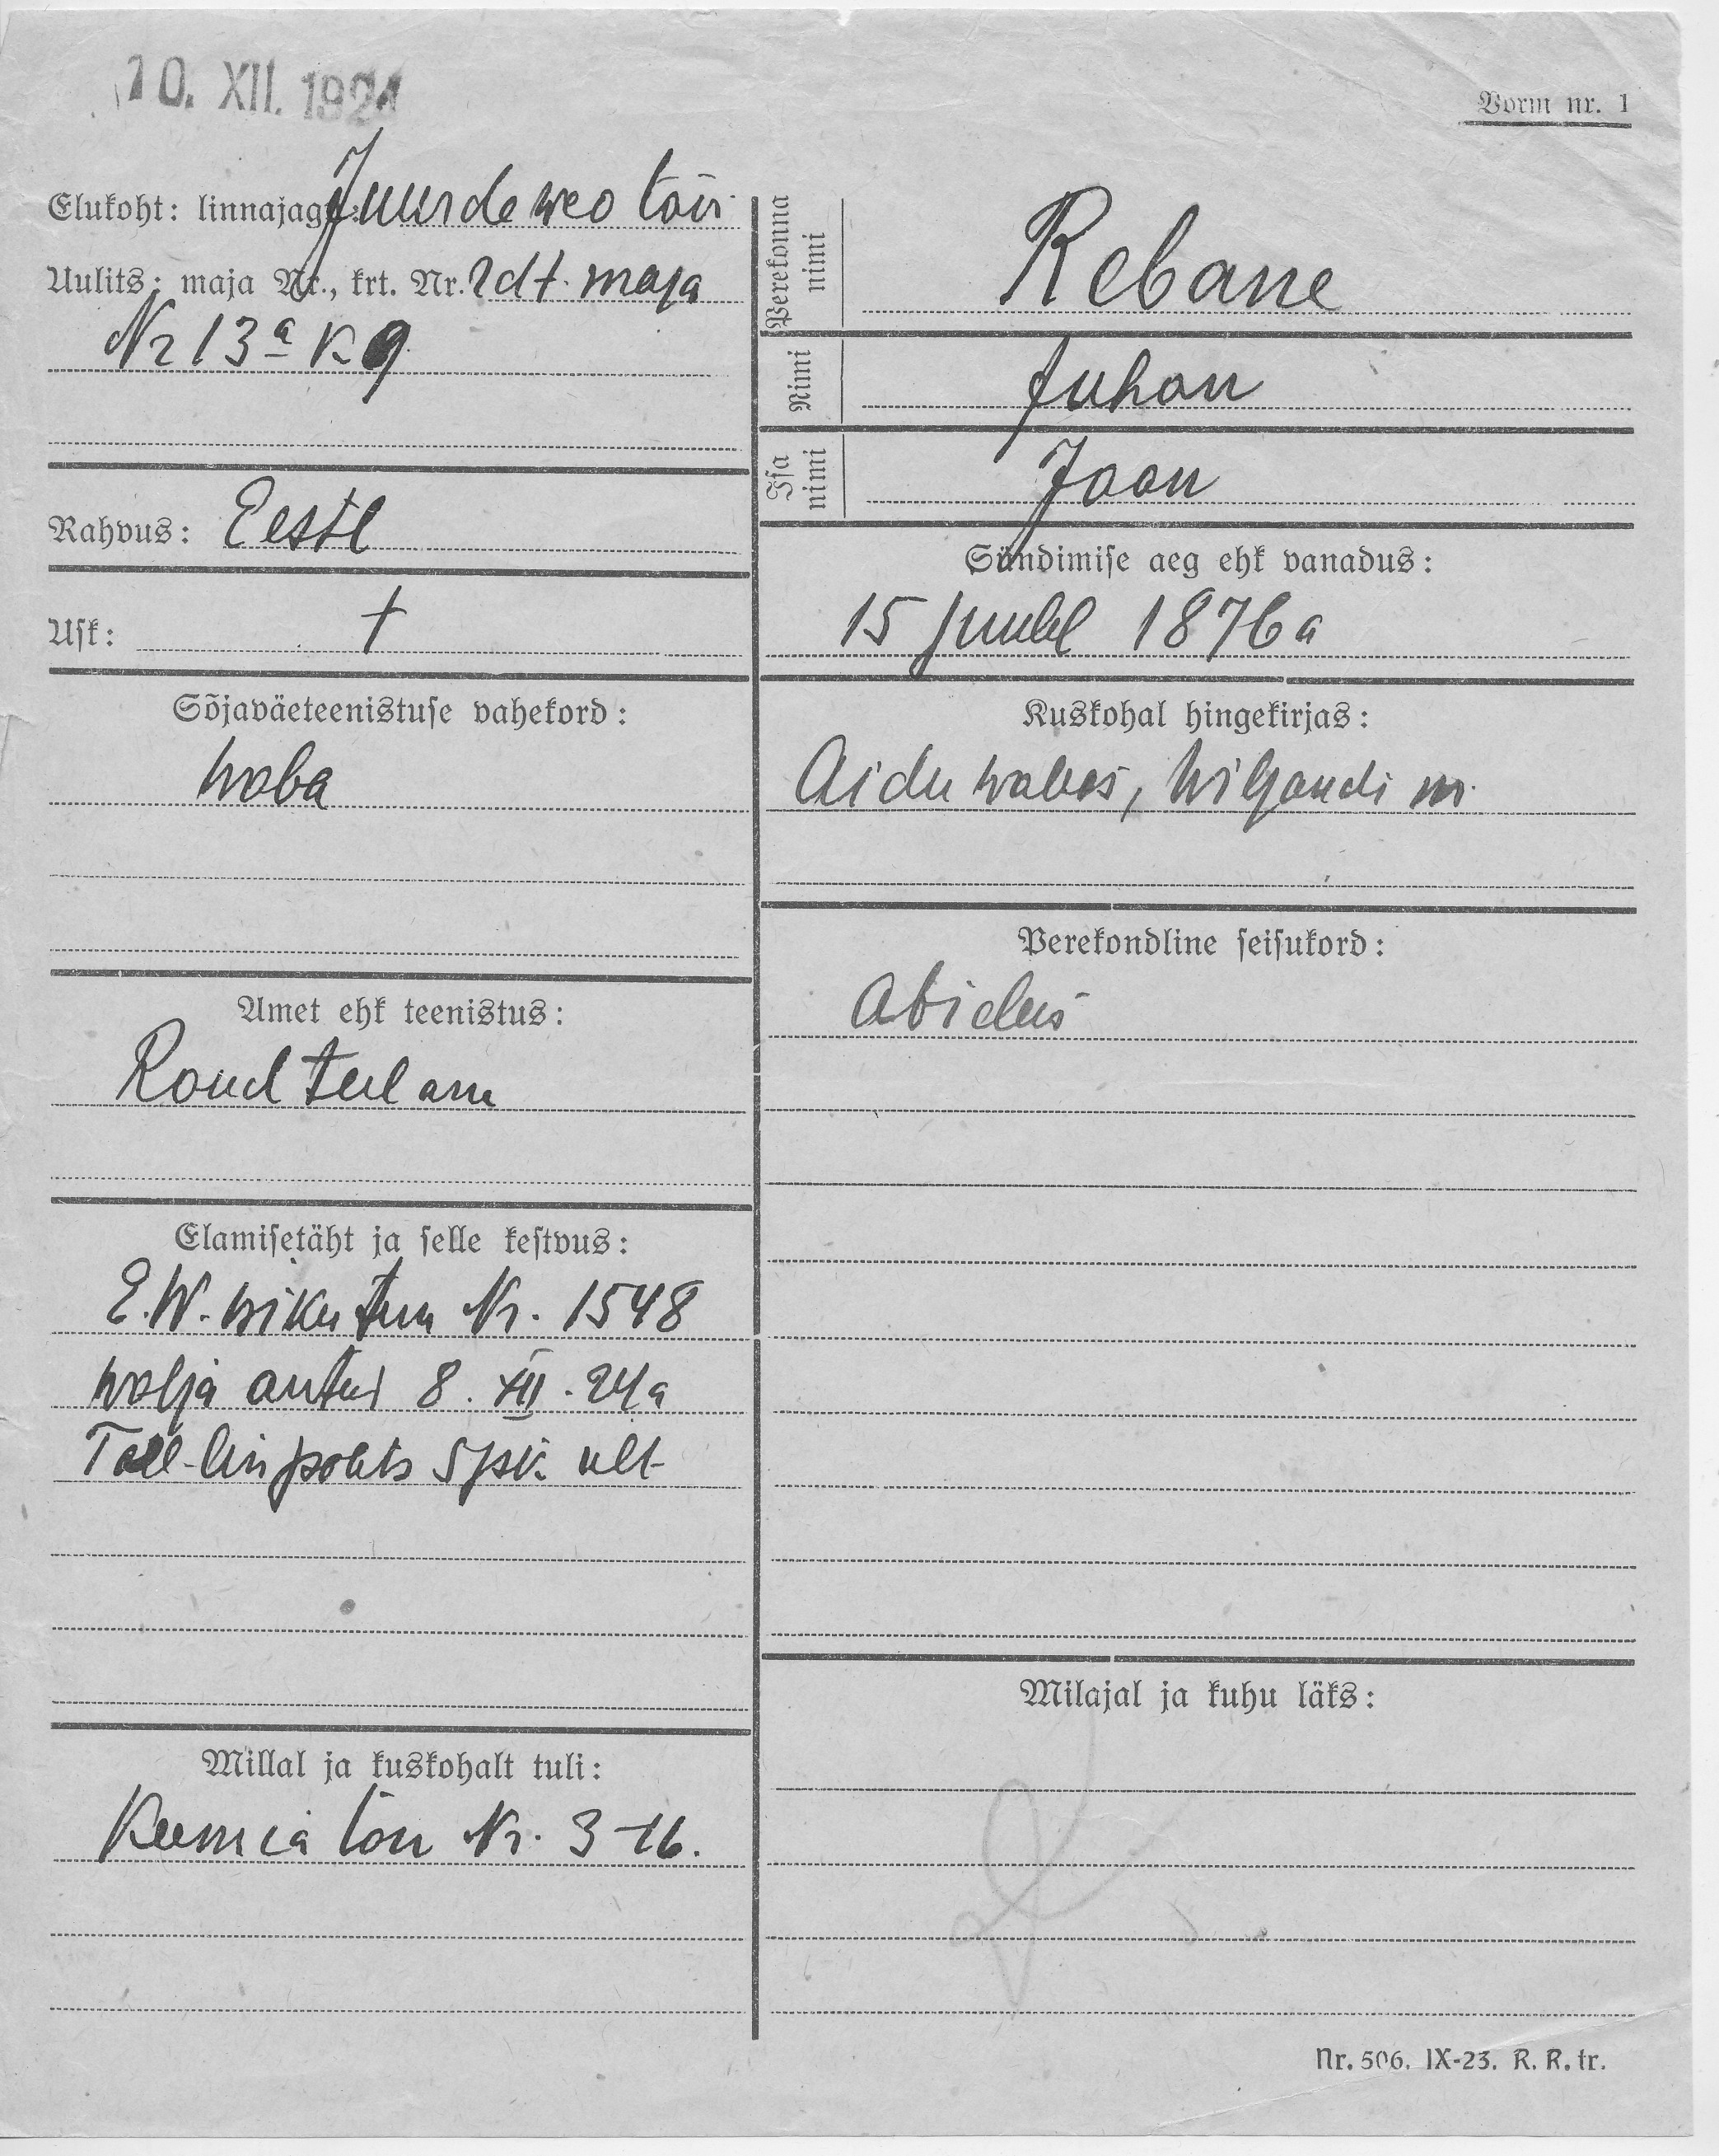 10. XII. 1924
Vorm nr. 1
Elukoht: linnajagu: Juurdeweo tän.
Uulits: maja Nr., krt. Nr. rdt. maja
Nr 13a K 9
Rahvus: Eestl
Usk: †
Sõjaväeteenistuse vahekord:
waba
Amet ehk teenistus:
Raudteelane
Elamisetäht ja selle kestvus:
E.W. Nr. 1548
walja antud 8. XII. 24a
Tall-lin polits 5 jsk. ult
Millal ja kuskohalt tuli:
Keemia tän Nr. 3-16.
Perekonna nimi
Rebane
Nimi
Juhan
Isa nimi
Jaan
Sündimise aeg ehk vanadus:
15 1876 a
Kuskohal hingekirjas:
Aidu wallas, Wiljandi m.
Perekondline seisukord:
Abielus
Milajal ja kuhu läks:
Nr. 506. IX-23. R. R. tr.